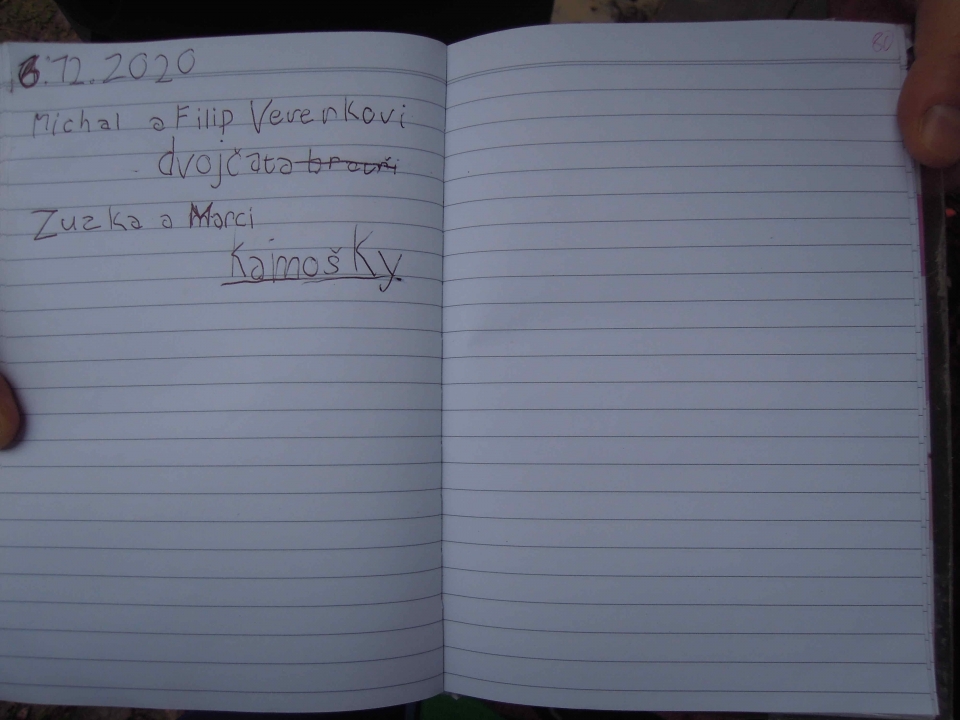 6.12.2020
Michal a Filip Verenkovi
dvojčata bratři
Zuzka a Marci
KamošKy
80